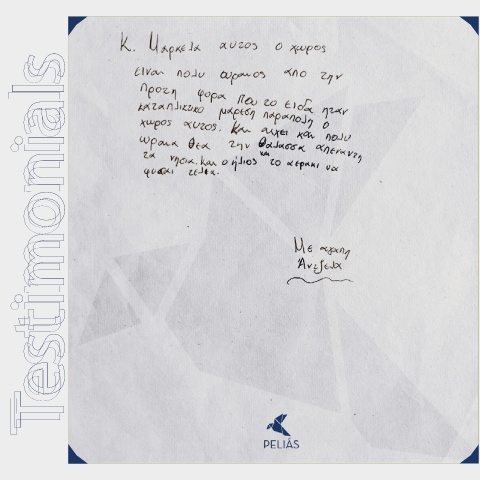 Testimonials
Κ. Μαρκελα αυτος ο χωρος
ειναι πολυ ομορφος απο την
Πρωτη φορα που το ειδα ηταν
καταπλικτικο μαρεση παραπολη ο
χωρος αυτος. Και αιχει και πολυ
ωραια θεα την θαλασσα απεναντη
τα νησια. και ο ήλιος και το αερακι να
φυσαι τελεια.
Με αγαπη
Ανζελα
PELIÁS